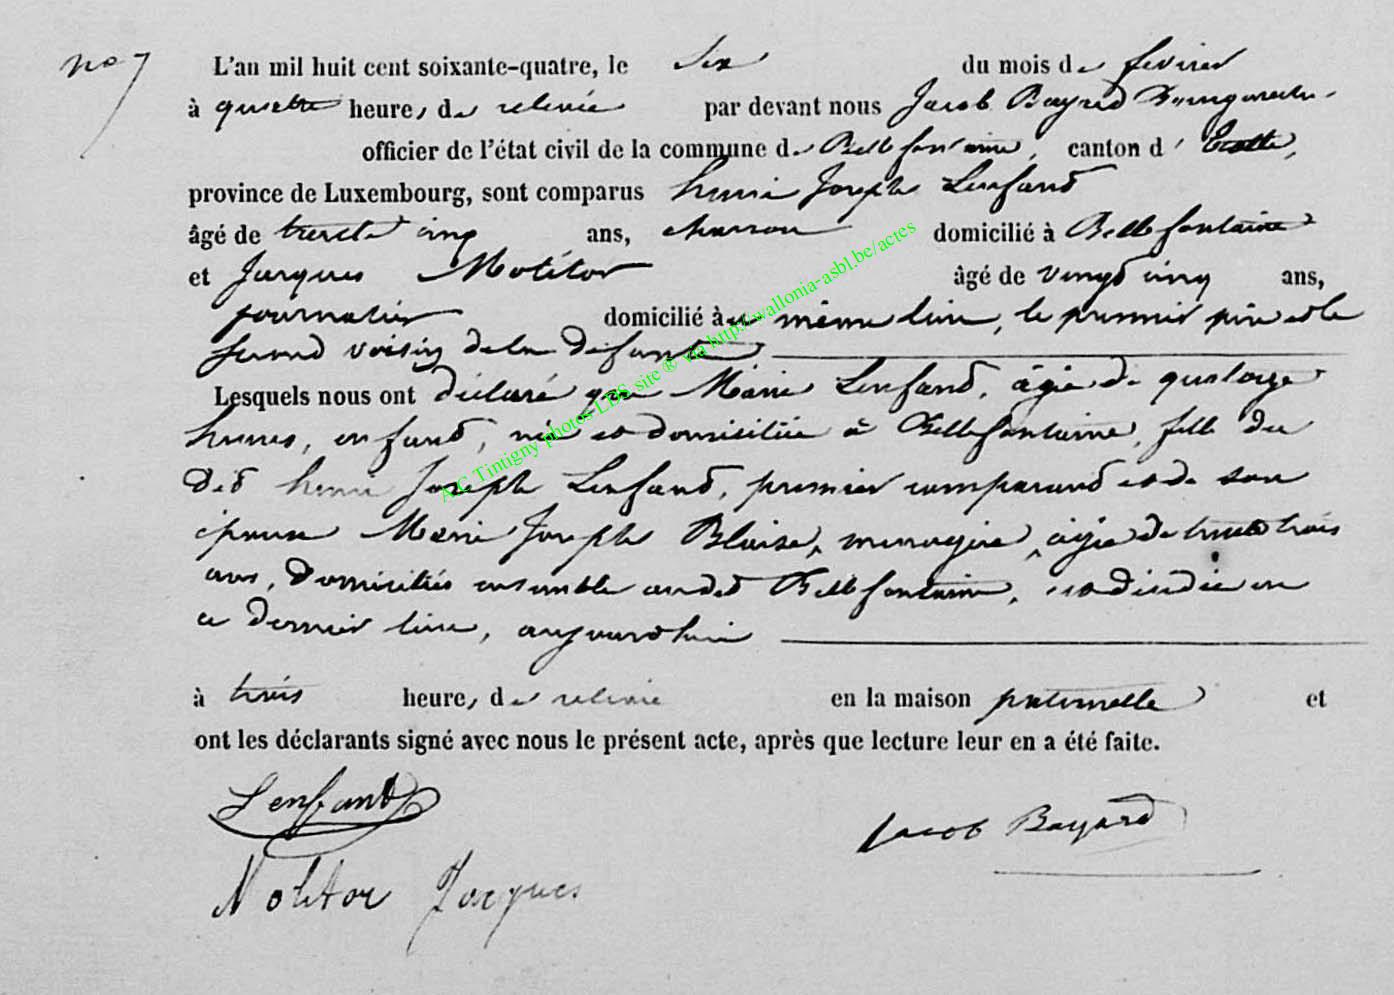 no 7
L'an mil huit cent soixante-quatre, le six du mois de fevrier
à quatre heures de relevée par devant nous Jacob Bayard Bourgmestre
officier de l'état civil de la commune de Bellefontaine, canton d'Etalle,
province de Luxembourg, sont comparus henri Joseph Lenfand
âgé de trente cinq ans, charron domicilié à Bellefontaine
et Jacques Molitor âgé de vingt cinq ans,
journalier domicilié à même lieu, le premier père et le
second voisin de la défunte
Lesquels nous ont déclaré que Marie Lenfand, âgée de quatorze
heures, enfand, née et domiciliée à Bellefontaine, fille du
ded henri Joseph Lenfand, premier comparand et de son
épouse Marie Joseph Blaise, menagère, âgée de trente trois
ans, domiciliés ensemble au ded Bellefontaine, est décédée en
ce dernier lieu, aujourd'hui
à trois heures de relevée en la maison paternelle et
ont les déclarants signé avec nous le présent acte, après que lecture leur en a été faite.
Lenfand
Jacob Bayard
Molitor Jacques
A/C Tintigny photos LDS site ® via http://wallonia-asbl.be/actes